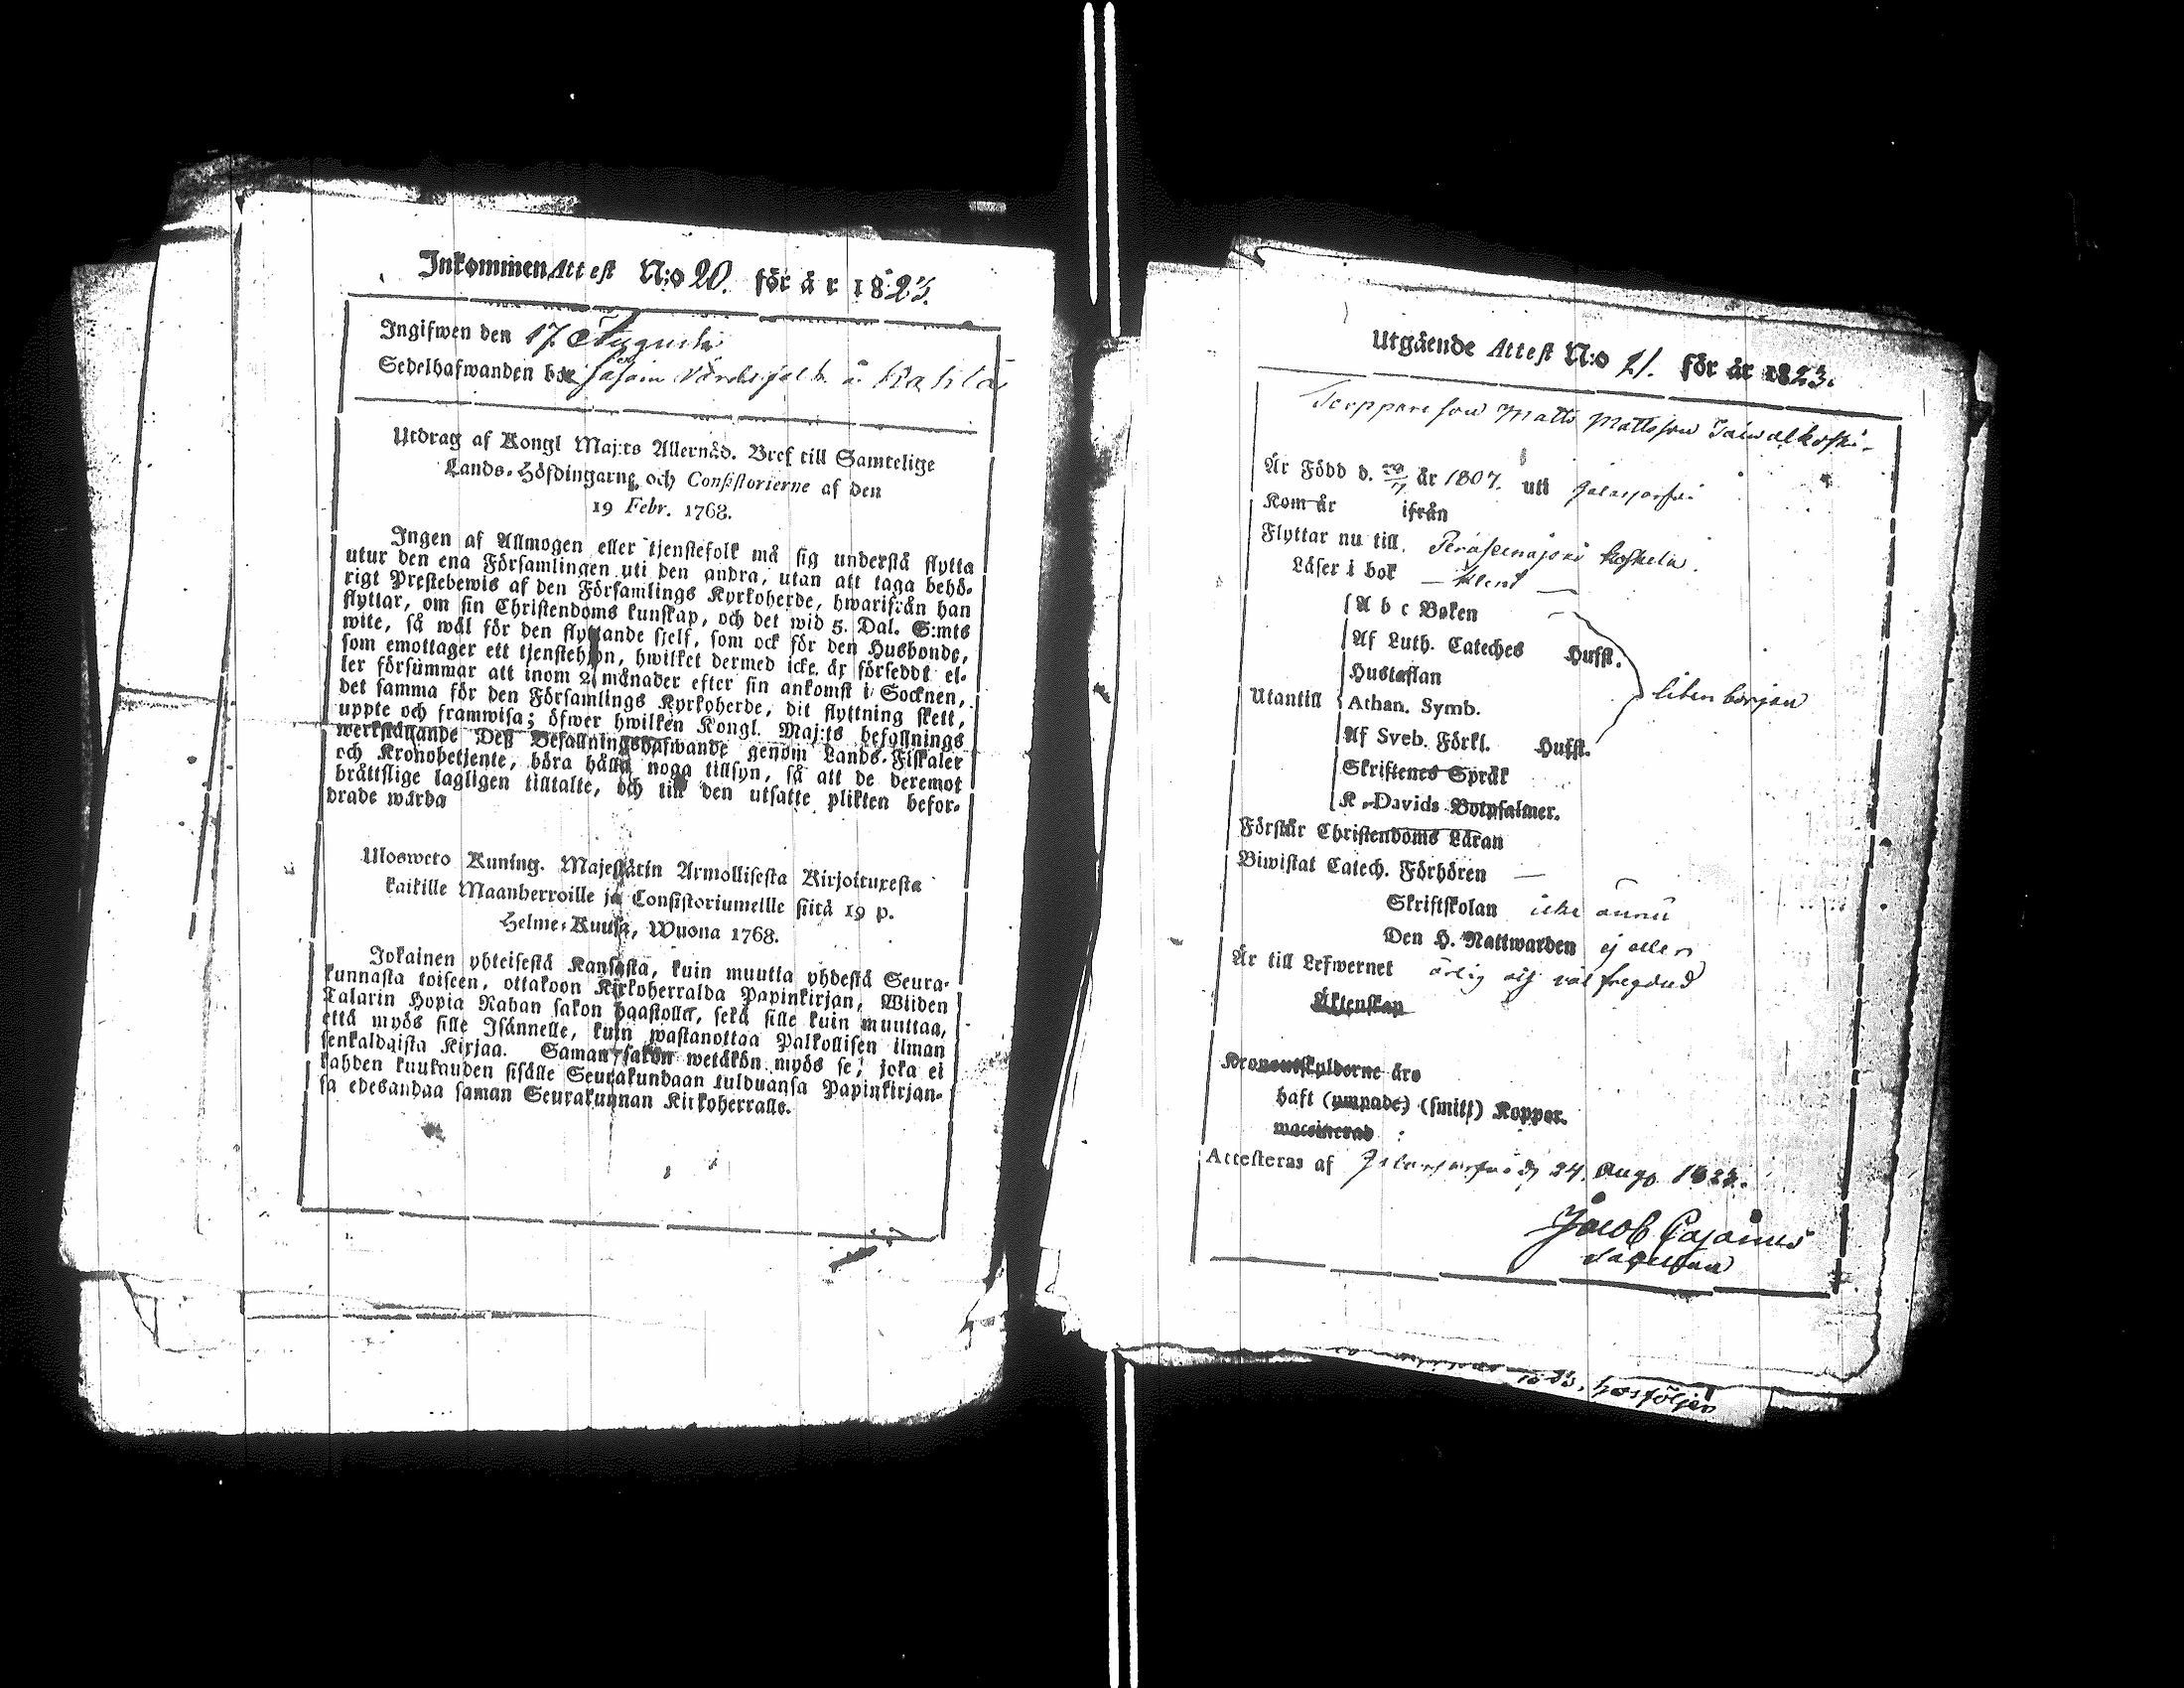 Inkommen Attest N:o 20. för år 1823.
Ingifwen den 17 Augusti
Sedelhafwanden bor
Utdrag af Kongl Maj:ts Allernåd. Bref till Samtelige
Lands-Höfdingarne och Consistorierne af den
19 Febr. 1768.
Ingen af Allmogen eller tjenstefolk må sig understå flytta
utur den ena Församlingen uti den andra, utan att taga behö-
rigt Prestebewis af den Församlings Kyrkoherde, hwarifrån han
flyttar, om sin Christendoms kunskap, och det wid 5. Dal. S:mts
wite, så wäl för den flyttande sjelf, som ock för den Husbonde,
som emottager ett tjenstehjon, hwilket dermed icke är förseddt el-
ler försummar att inom 2 månader efter sin ankomst i Socknen,
det samma för den Församlings Kyrkoherde, dit flyttning skett,
uppte och framwisa; öfwer hwilken Kongl. Maj:ts befallnings
werkställande Dess Befallningshafwande genom Lands-Fiskaler
och Kronobetjente, böra hålla noga tillsyn, så att de deremot
bråttslige lagligen tilltalte, och till den utsatte plikten befor-
drade warda
Ulosweto Kuning. Majestätin Armollisesta Kirjoituxesta
kaikille Maanherroille ja Consistoriumeille siitä 19 p.
Helme-Kuusa, Wuona 1768.
Jokainen yhteisestä Kansasta, kuin muutta yhdestä Seura-
kunnasta toiseen, ottakoon Kirkoherralda Papinkirjan, Wiiden
Talarin Hopia Rahan sakon haastolla, sekä sille kuin muuttaa,
että myös sille Isännelle, kuin wastanottaa Palkollisen ilman
senkaldaista Kirjaa. Saman sakon wetäkön myös se, joka ei
kahden kuukauden sisälle Seurakundaan tulduansa Papinkirjan-
sa edesandaa saman Seurakunnan Kirkoherralle.
Utgående Attest N:o 21. för år 1823.
Matts Mattsson
Är Född d. år 1807. uti Jalasjärfvi
Kom år ifrån
Flyttar nu till Peräseinäjoki Koskela.
Läser i bok — klent
A b c Boken
Af Luth. Cateches Hufst.
Hustaflan
Utantill Athan. Symb. liten början
Af Sveb. Förkl. Hufst.
Skriftenes Språk
K. Davids Botpsalmer.
Förstår Christendoms Läran
Biwistat Catech. Förhören —
Skriftskolan icke ännu
Den H. Nattwarden ej eller
Är till Lefwernet ärlig och väl fregdad
Äktenskap
Kronoutskylderne äro
haft (ympade) (smitt) Koppor.
waccinerad
Attesteras af Jalasjärfvi d. 24. Aug. 1823.
Jacob Cajanus
hosföljer